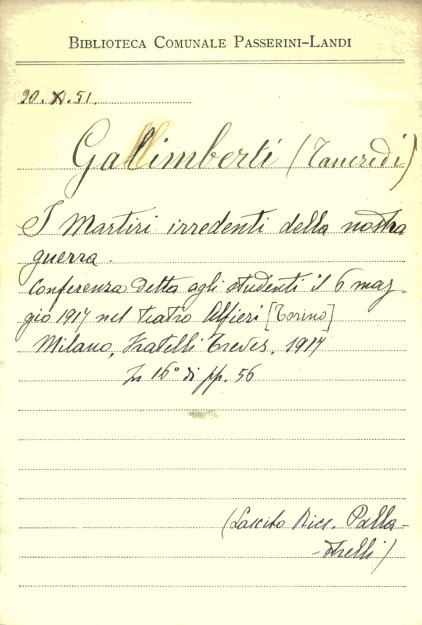 BIBLIOTECA COMUNALE PASSERINI-LANDI
20.XI.51.
Gallimberti (Tancredi)
I Martiri irredenti della nostra
guerra.
Conferenza detta agli studenti il 6 mag-
gio 1917 nel teatro Alfieri [Torino]
Milano, Fratelli Treves, 1917
In 16° di pp. 56
(Lascito Ricc. Palla-
-strelli)